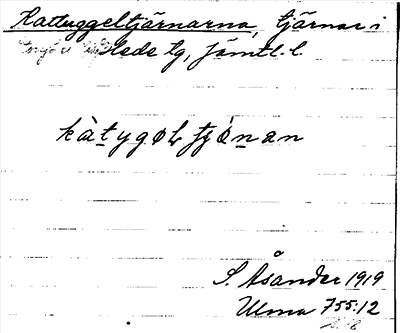 Kattuggeltjärnarna, tjärnar i
Hede tg, Jämtl. l.
kàtygøɫ tjónan
S. Åsander 1919
Ulma 755:12